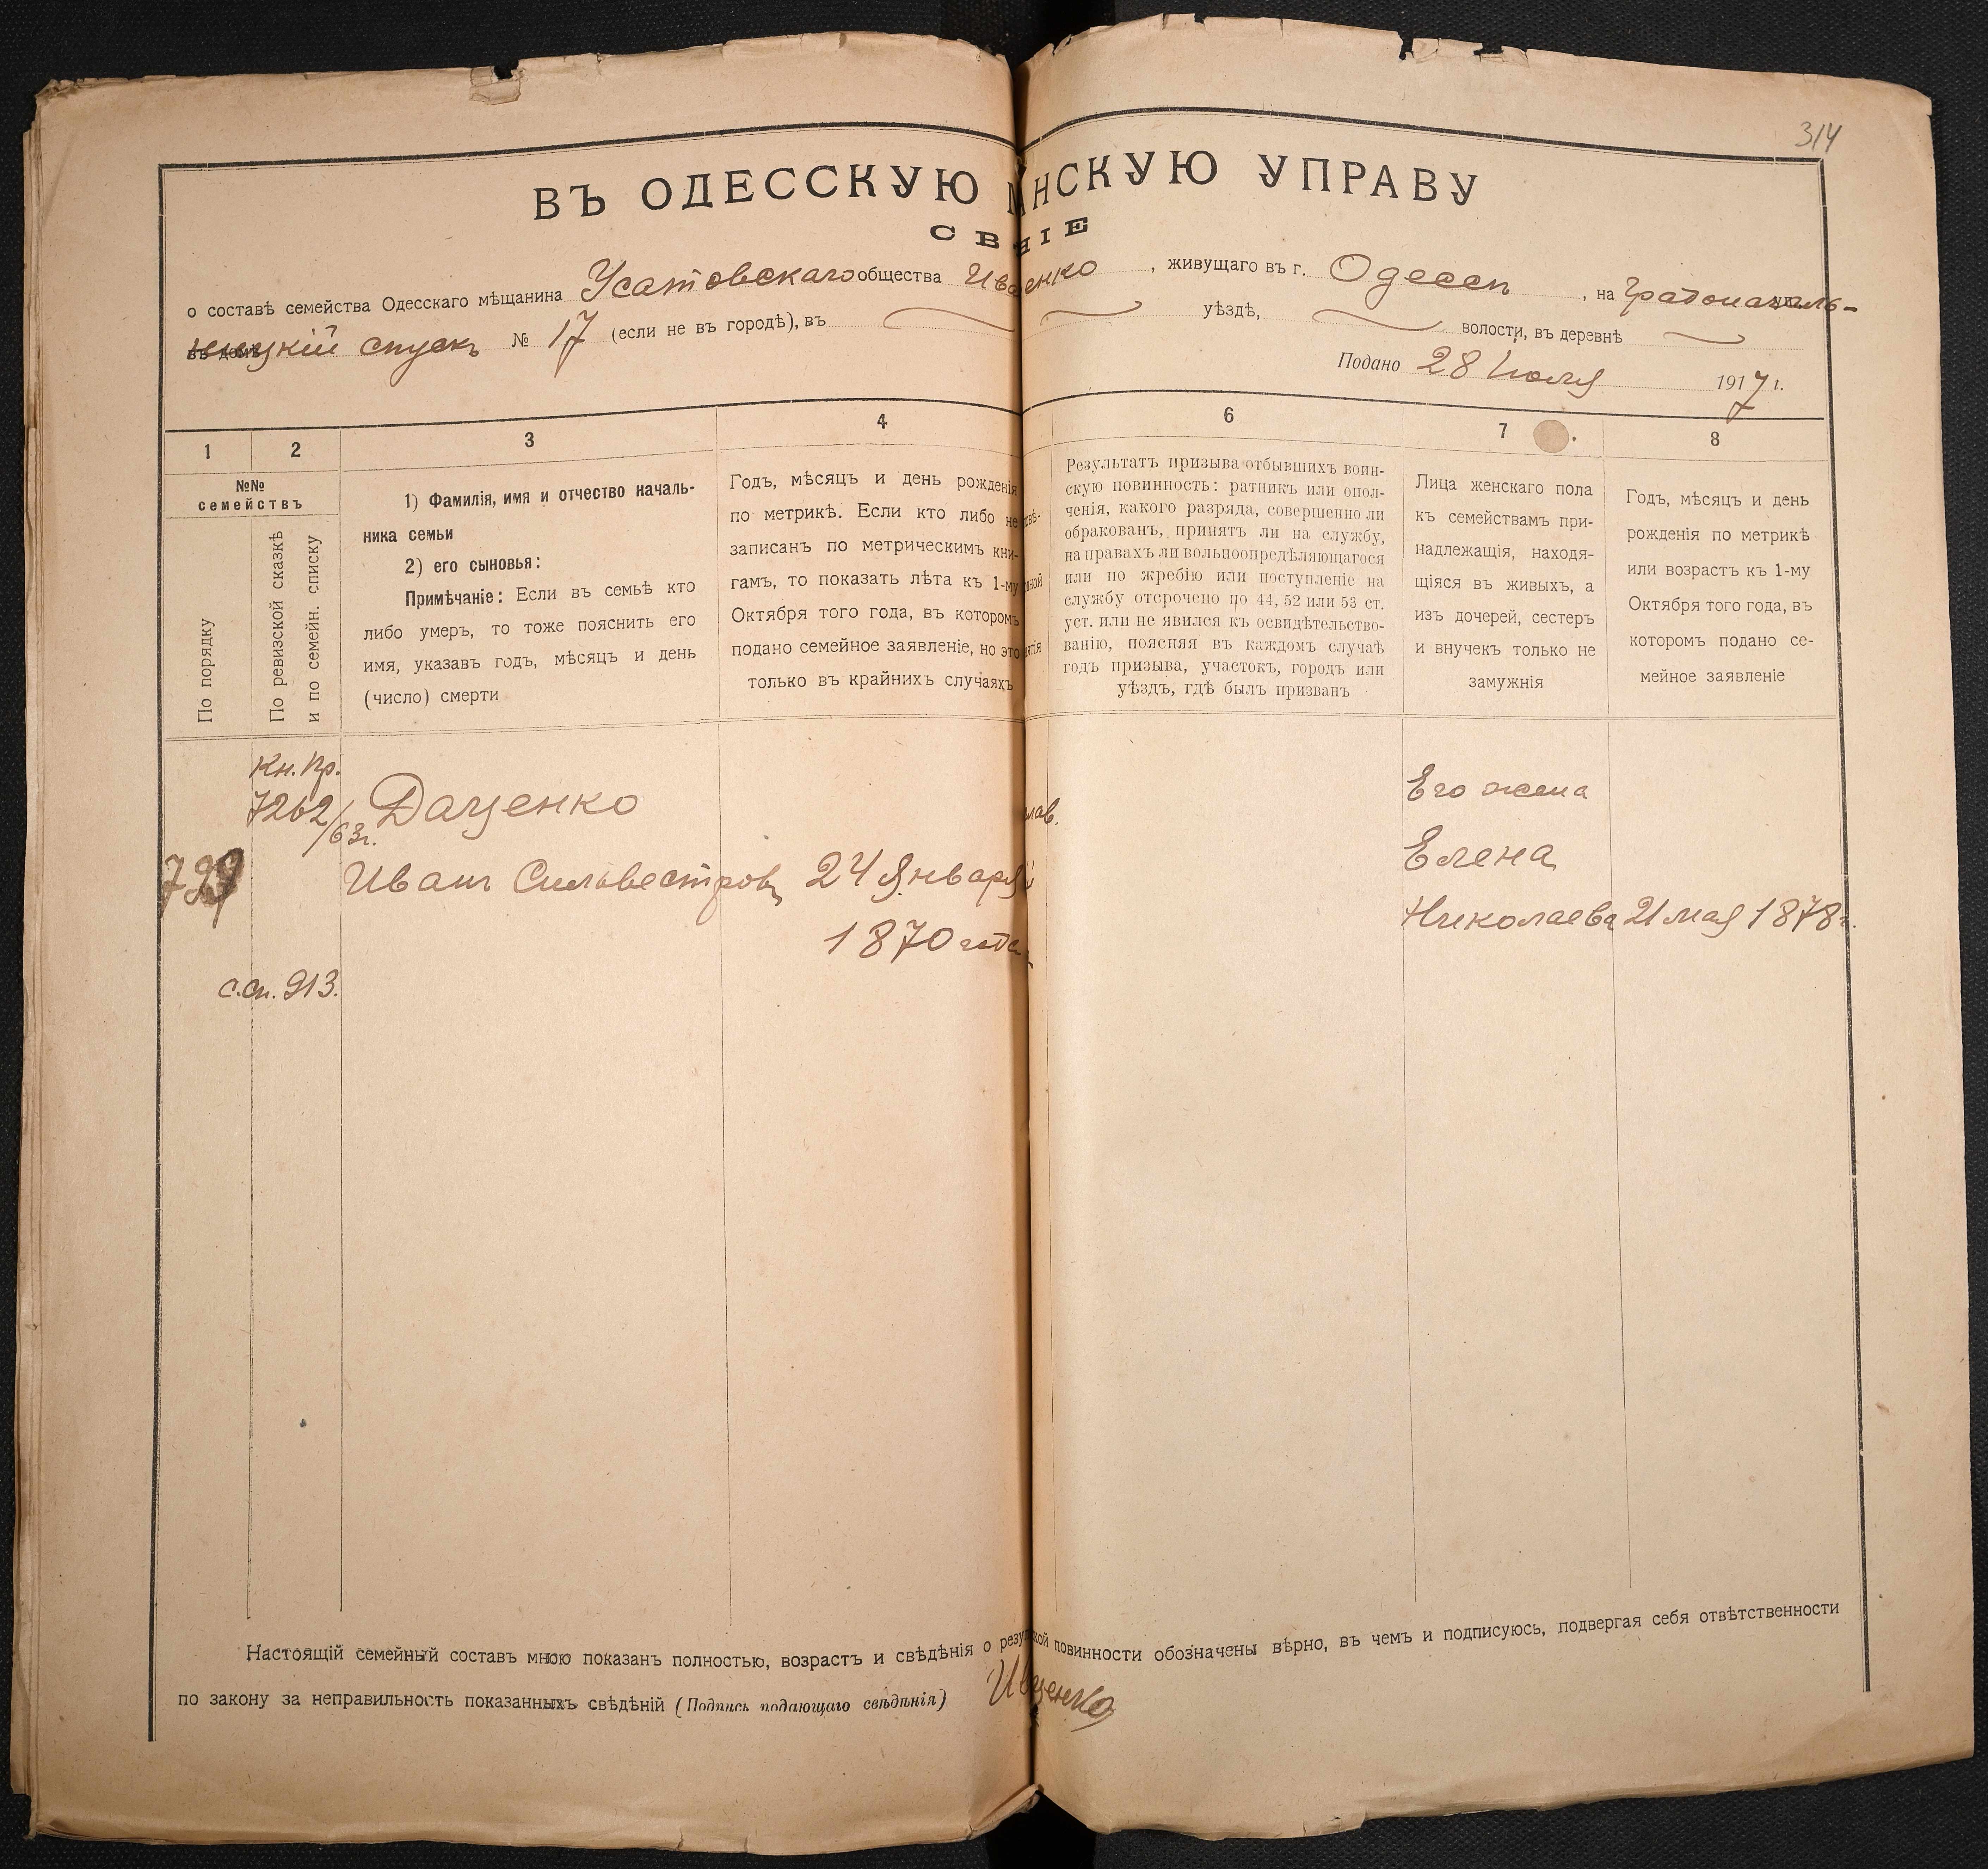 314
ВЪ ОДЕССКУЮ НСКУЮ УПРАВУ
СВ НІЕ
о составѣ семейства Одесскаго мѣщанина Усатовскаго общества Ива енко , живущаго въ г. Одессѣ , на Градоначаль-
ницкій спускъ № 17 (если не въ городѣ), въ уѣздѣ, волости, въ деревнѣ
Подано 28 Июля 1917 г.
1 2 3 4 6 7 8
№№
семействъ
По порядку
По ревизской сказкѣ
и по семейн. списку
1) Фамилія, имя и отчество началь-
ника семьи
2) его сыновья:
Примѣчаніе: Если въ семьѣ кто
либо умеръ, то тоже пояснить его
имя, указавъ годъ, мѣсяцъ и день
(число) смерти
Годъ, мѣсяцъ и день рожденія
по метрикѣ. Если кто либо не
записанъ по метрическимъ кни-
гамъ, то показать лѣта къ 1-му
Октября того года, въ которомъ
подано семейное заявленіе, но это
только въ крайнихъ случаяхъ
Результатъ призыва отбывшихъ воин-
скую повинность: ратникъ или опол-
ченія, какого разряда, совершенно ли
обракованъ, принятъ ли на службу,
на правахъ ли вольноопредѣляющагося
или по жребію или поступленіе на
службу отсрочено по 44, 52 или 53 ст.
уст. или не явился къ освидѣтельство-
ванію, поясняя въ каждомъ случаѣ
годъ призыва, участокъ, городъ или
уѣздъ, гдѣ былъ призванъ
Лица женскаго пола
къ семействамъ при-
надлежащія, находя-
щіяся въ живыхъ, а
изъ дочерей, сестеръ
и внучекъ только не
замужнія
Годъ, мѣсяцъ и день
рожденія по метрикѣ
или возрастъ къ 1-му
Октября того года, въ
которомъ подано се-
мейное заявленіе
Кн. Пр.
7262/63г.
Даценко
Иванъ Сильвестровъ 24 Января
1870 года
с.сп. 913.
лав.
Его жена
Елена
Николаева 21 мая 1878г.
Настоящій семейный составъ мною показанъ полностью, возрастъ и свѣдѣнія о резу кой повинности обозначены вѣрно, въ чемъ и подписуюсь, подвергая себя отвѣтственности
по закону за неправильность показанныхъ свѣдѣній (Подпись подающаго свѣдѣнія)